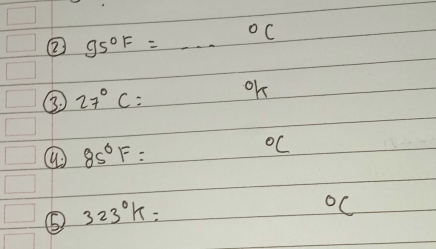 ② 95°F = ... °C
③ 27° C = °K
④ 85°F = °C
⑤ 323°K = °C